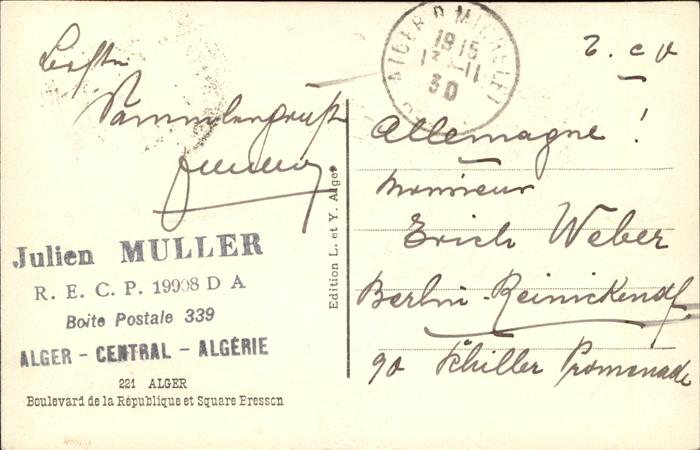 Beste
Sammlergrüße
Julien MULLER
R. E. C. P. 19908 D A
Boite Postale 339
ALGER - CENTRAL - ALGÉRIE
221 ALGER
Boulevard de la République et Square Bresson
Edition L. et Y. Alger
ALGER R. MICHELET
1915
13 - 11
30
T. c. v
Allemagne !
Monsieur
Erich Weber
Berlin-Reinickendf.
90 Schiller Promenade